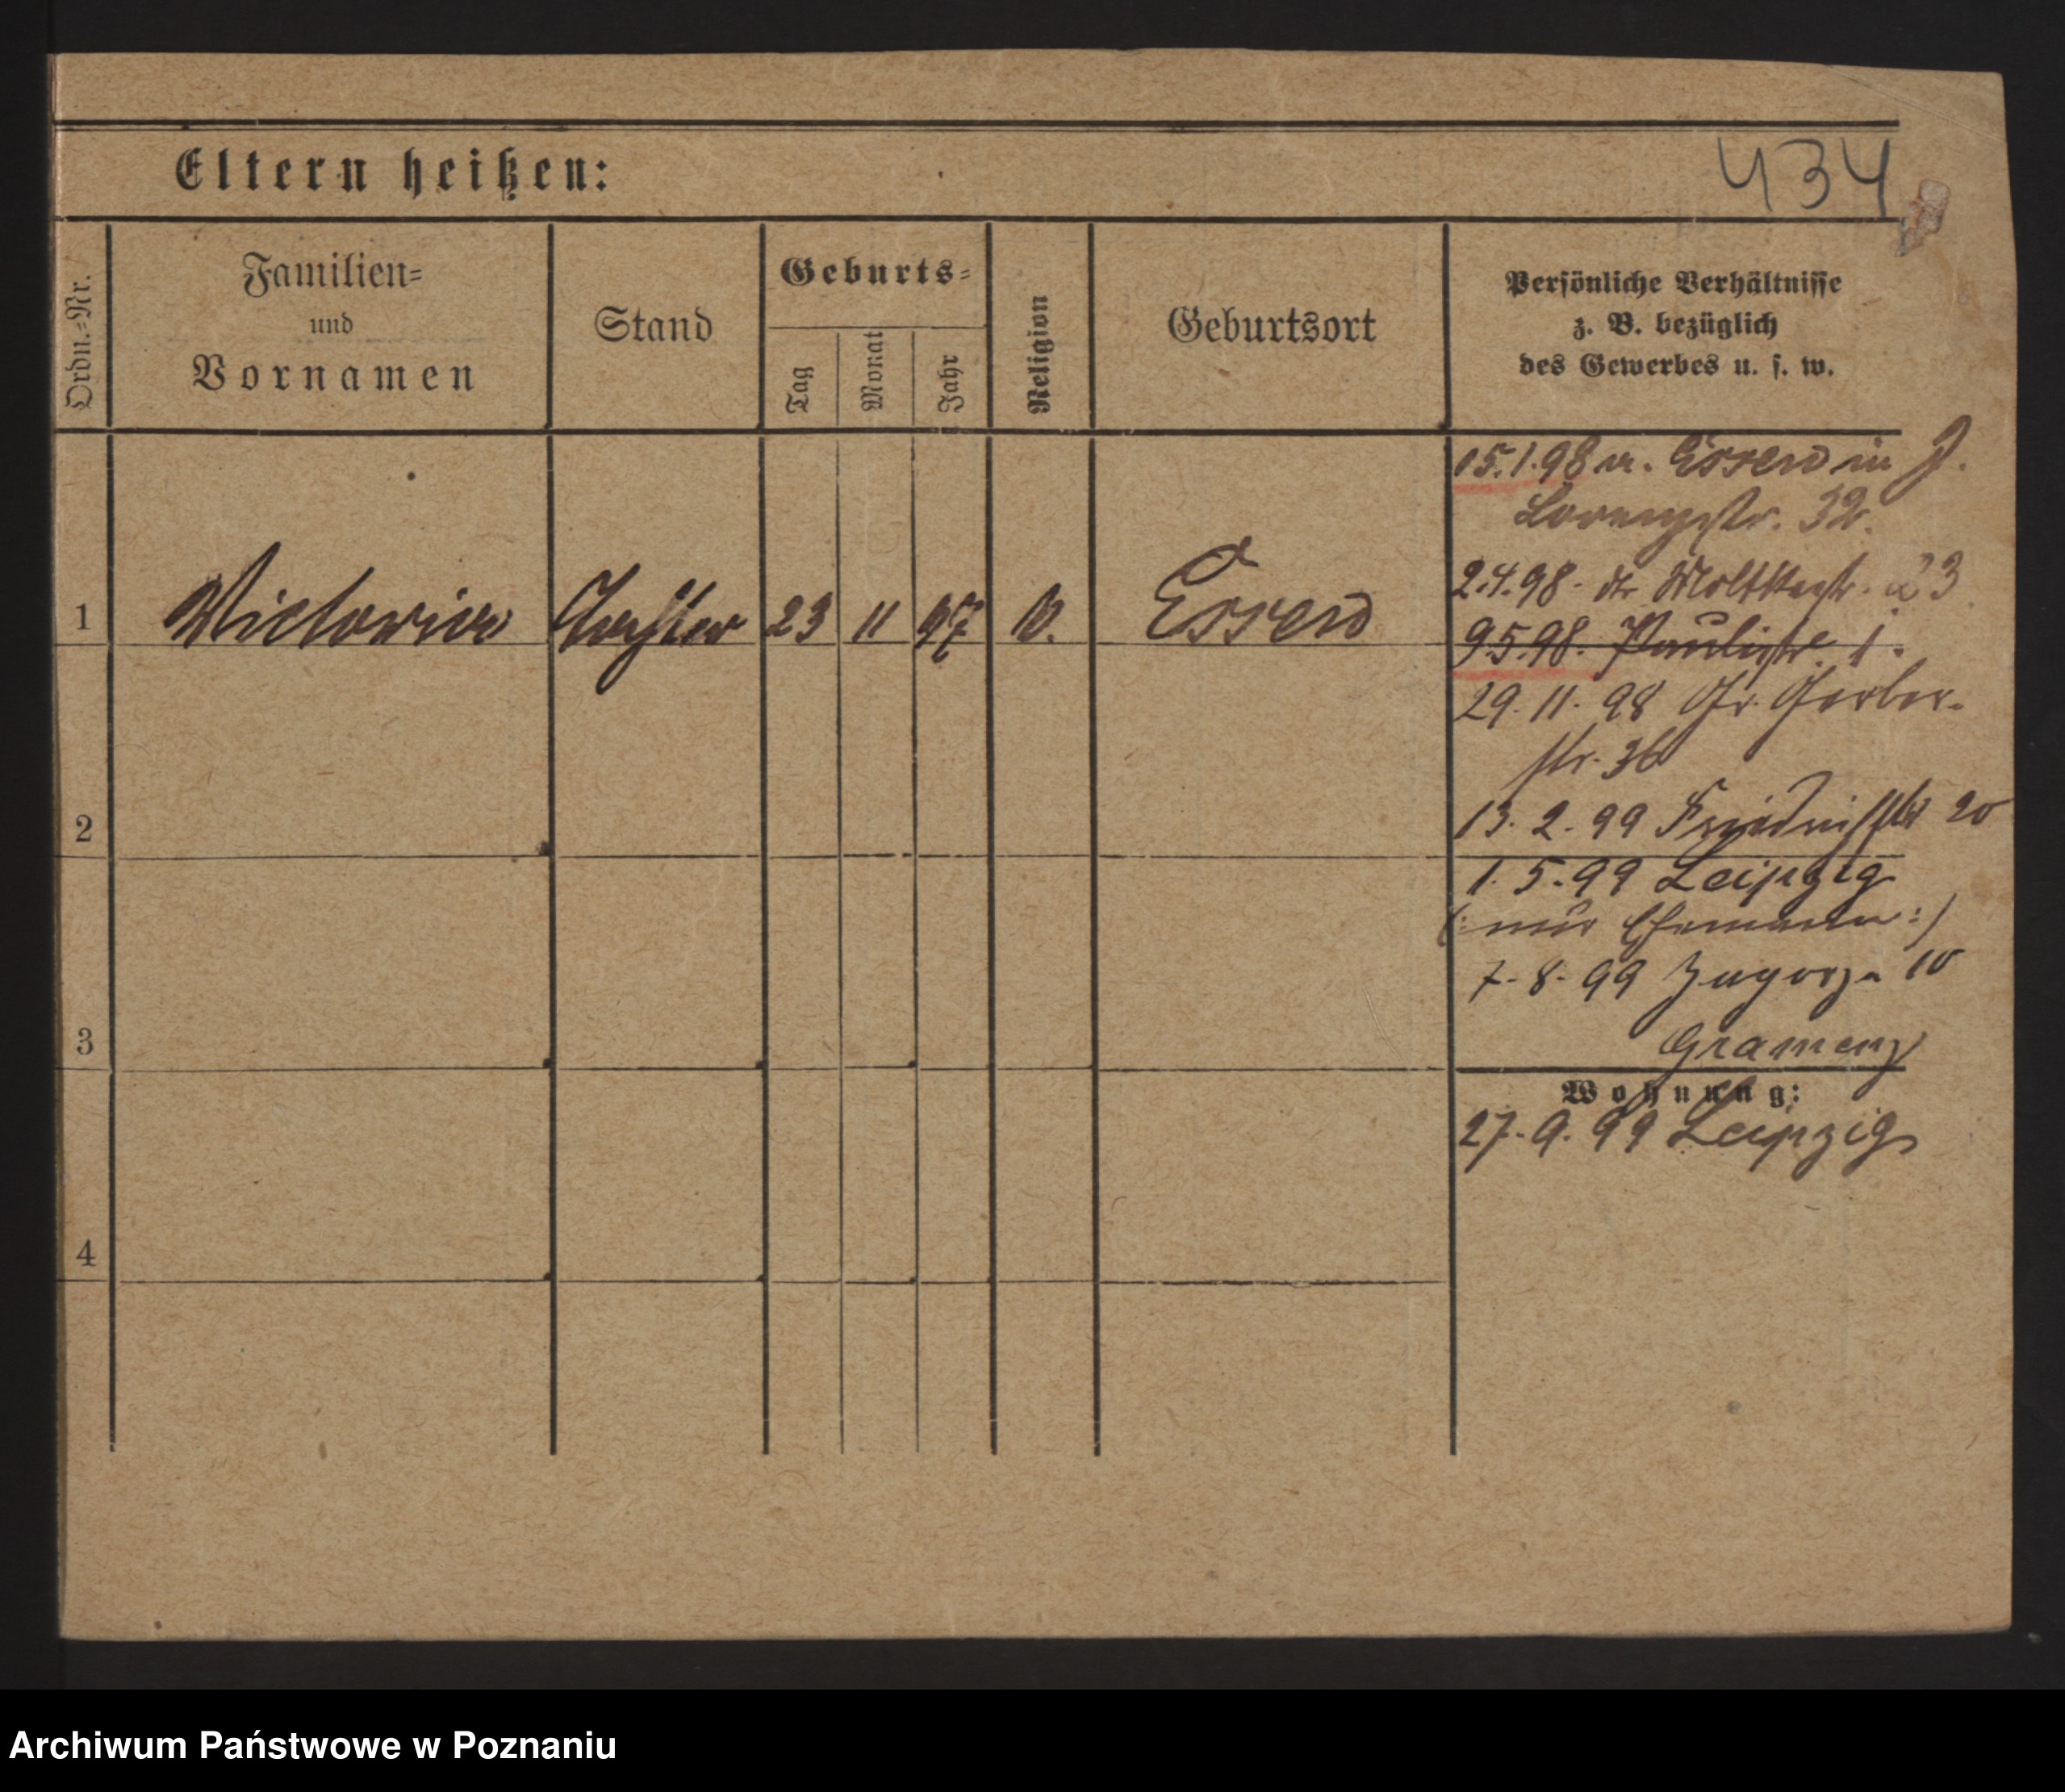 434
Eltern heißen:
Ordn.-Nr.
Familien-
und
Vornamen
Stand
Geburts-
Tag
Monat
Jahr
Religion
Geburtsort
Persönliche Verhältnisse
z. B. bezüglich
des Gewerbes u. s. w.
1 Victoria Tochter 23 11 97 Essen
15.1.98 v. Essen in J.
Lorenzstr. 32.
2.4.98 Moltkestr. 23
9.5.98. Paulistr. 1.
29. 11. 98 Gr. Gerber-
str. 36
2
13. 2. 99 20
1. 5. 99 Leipzig
(: nur Ehemann :)
7. 8. 99 Zagorze 10
3
Gramenz
Wohnung:
27. 9. 99 Leipzig
4
Archiwum Państwowe w Poznaniu